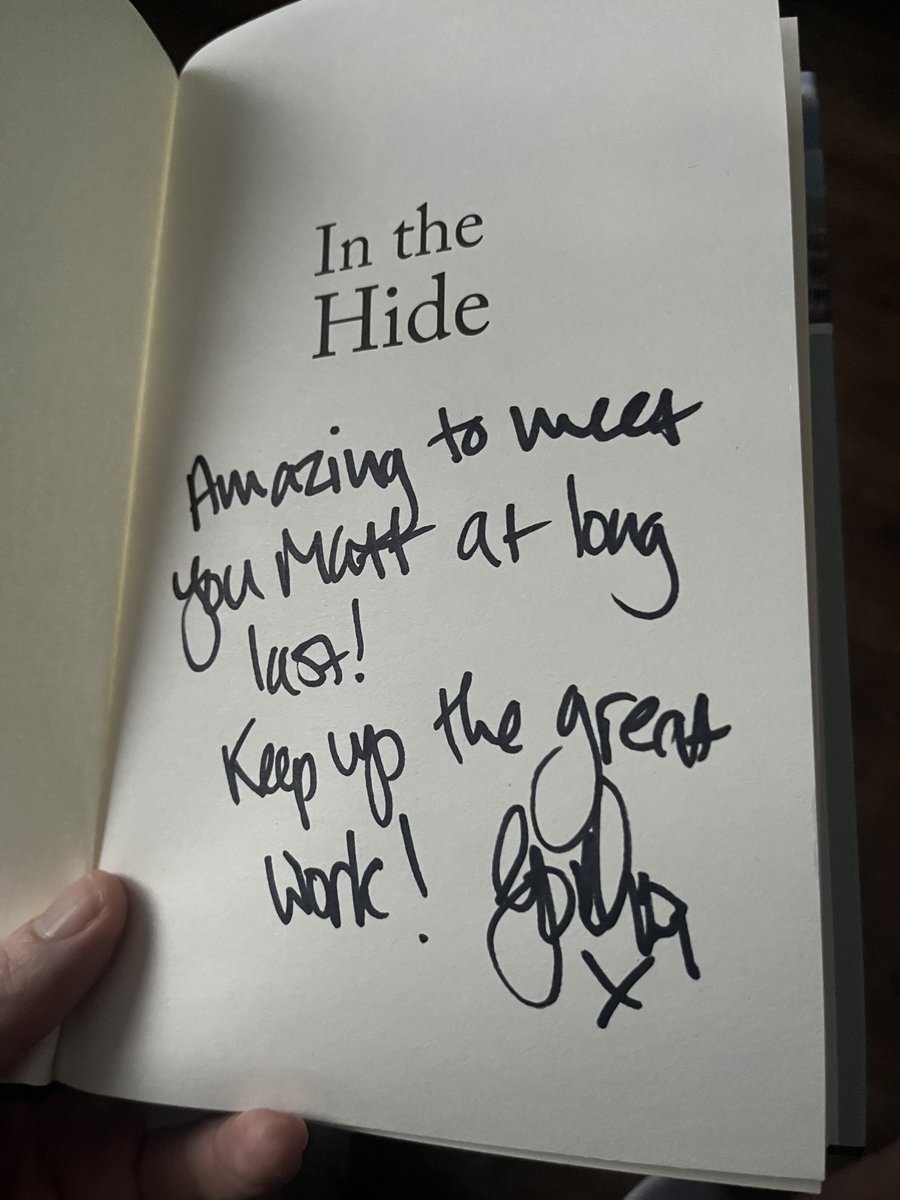 In the
Hide
Amazing to meet
you Matt at long
last!
Keep up the great
work!
x